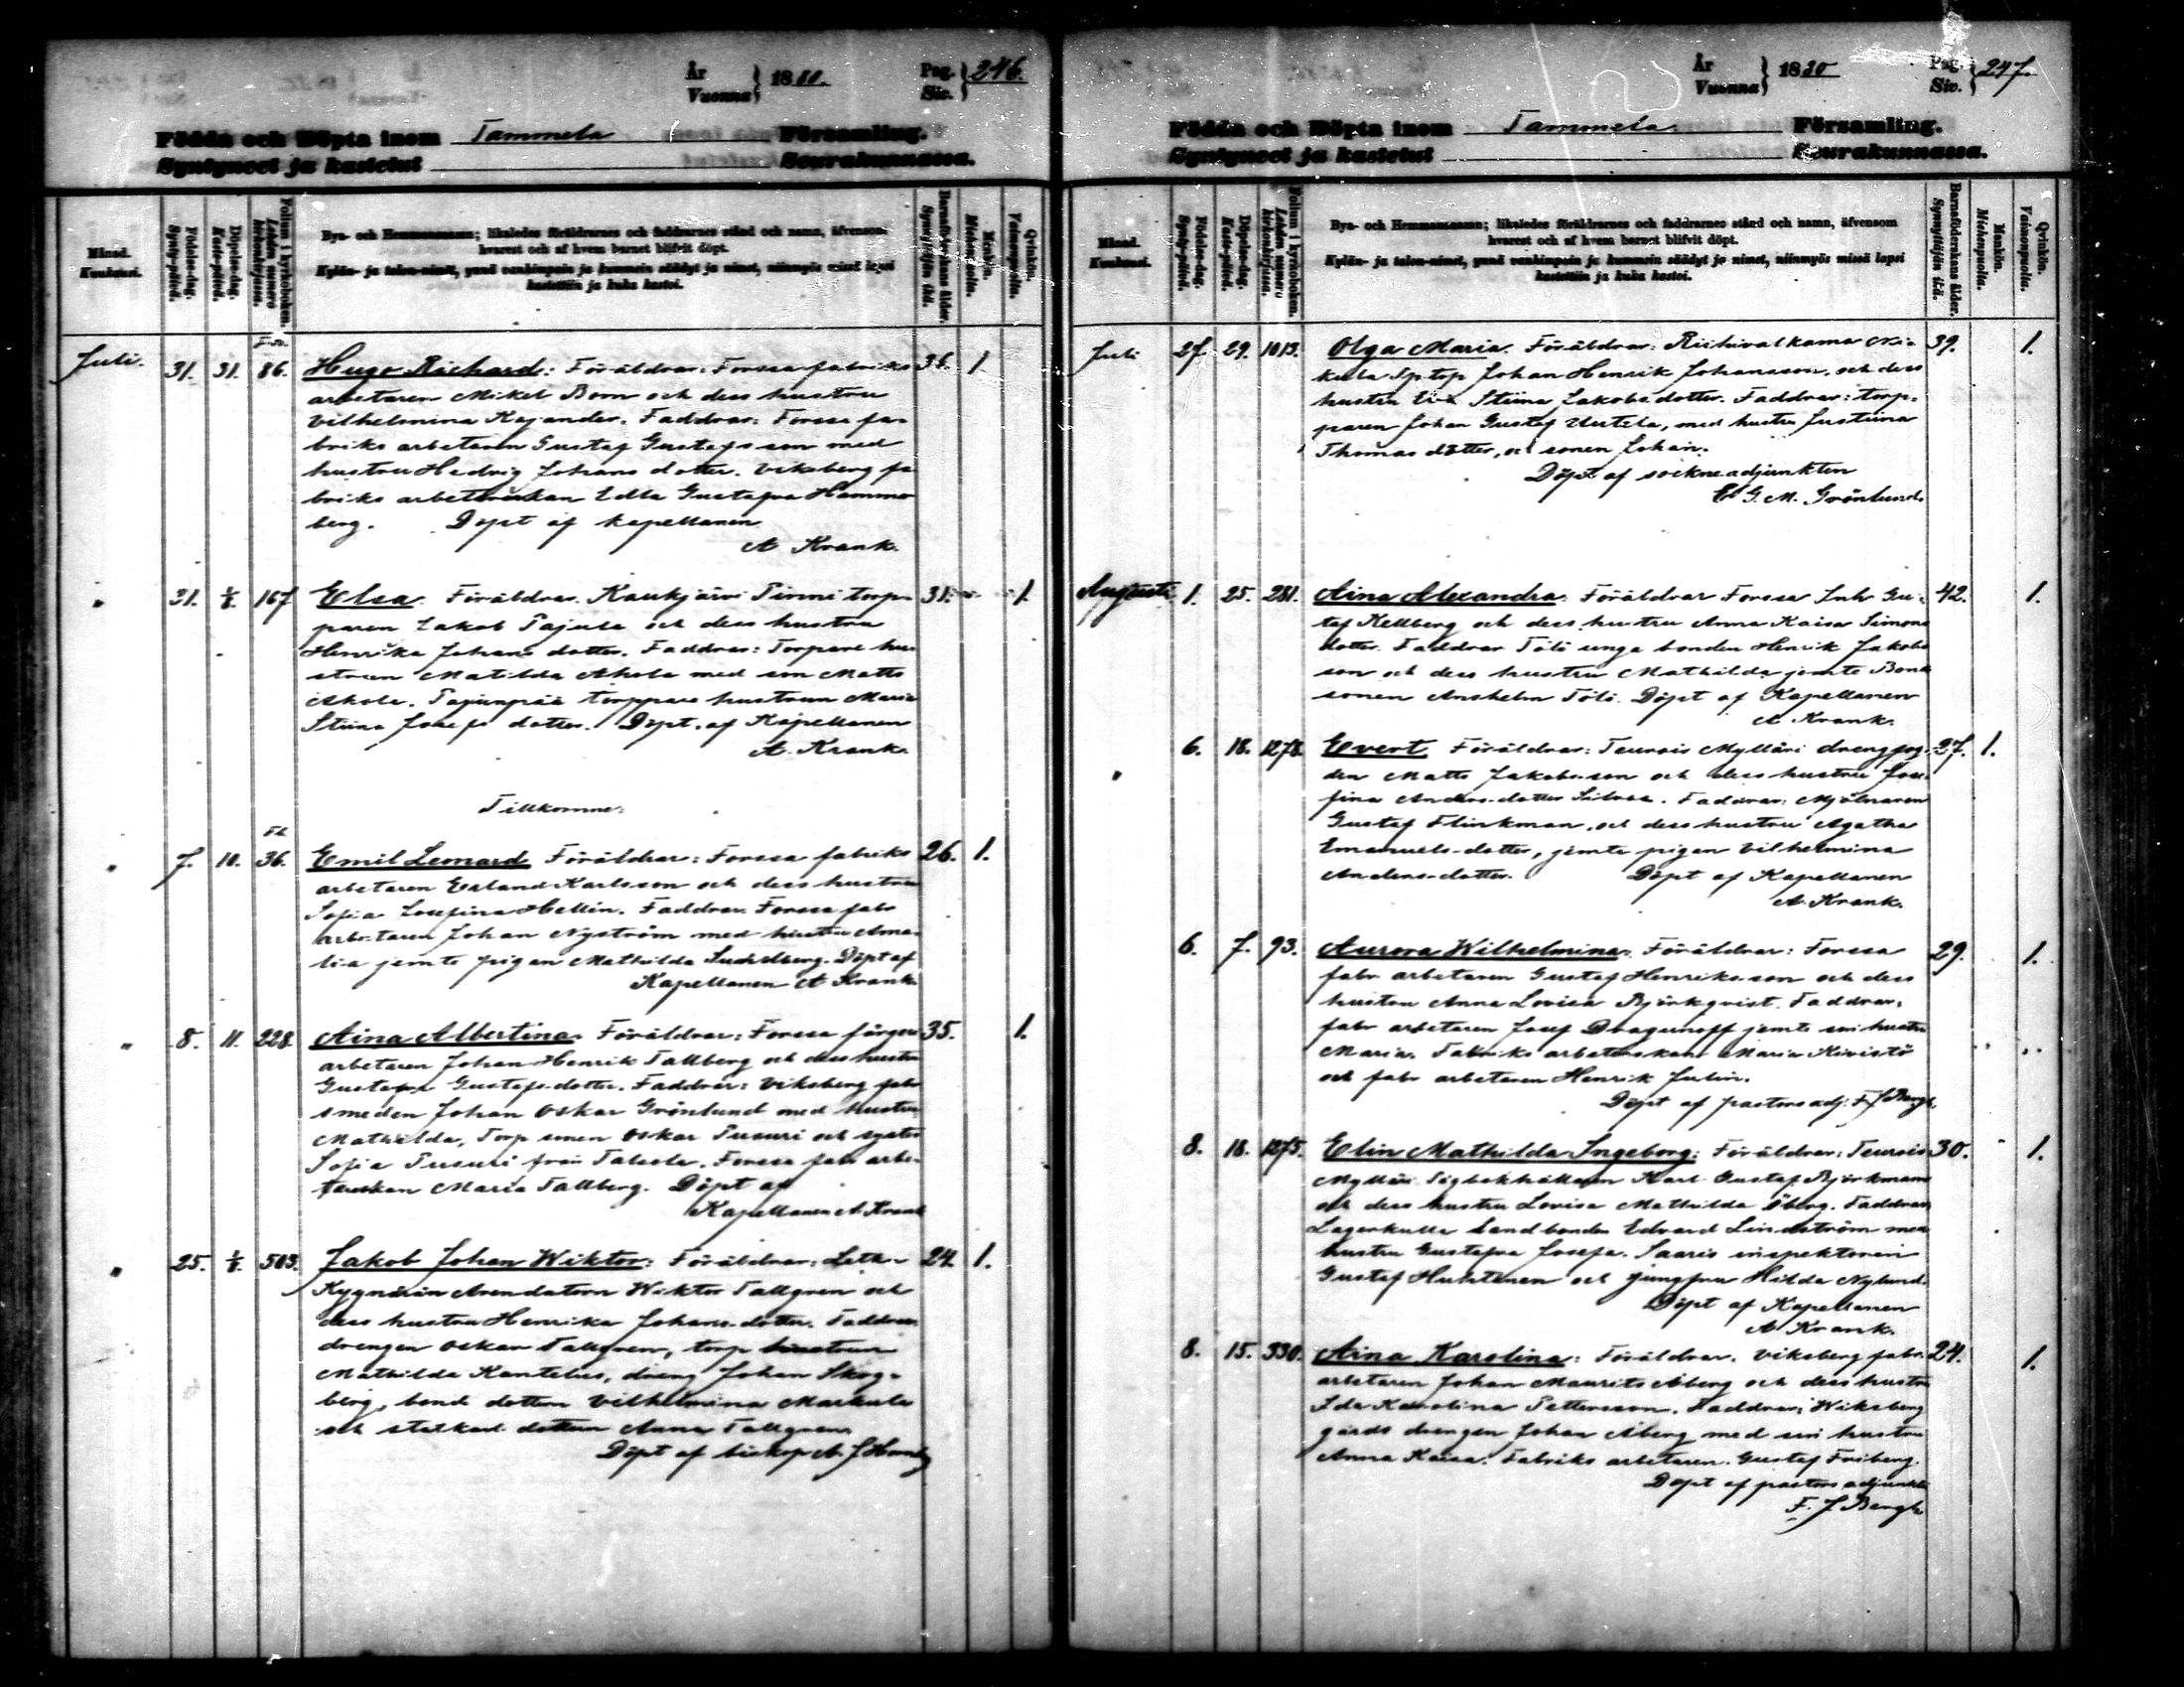 År
Vuonna } 1880. Pag.
Siv. } 246.
Födda och Döpta inom Tammela Församling.
Syntyneet ja kastetut Seurakunnassa.
Månad.
Kuukausi.
Födelse-dag.
Synty-päivä.
Döpelse-dag.
Kaste-päivä.
Folium i kyrkoboken.
Lehden numero kirkonkirjassa.
Bya- och Hemmansnamn; likaledes föräldrarnes och faddrarnes stånd och namn, äfvensom
hvarest och af hvem barnet blifvit döpt.
Kylän- ja talon-nimet, ynnä vanhimpain ja kummein säädyt ja nimet, niinmyös missä lapsi
kastettiin ja kuka kastoi.
Barnaföderskans ålder.
Synnyttäjän ikä.
Mankön.
Miehenpuolta.
Qvinkön.
Vaimonpuolta.
Juli. 31. 31. 86. Hugo Richard: Föräldrar: Forssa fabriks 36. 1
arbetaren Mikel Born och dess hustru
Vilhelmina Kajander. Faddrar: Forssa fa-
briks arbetaren Gustaf Gustafsson med
hustru Hedvig Johans dotter. Viksberg fa
briks arbeterskan Edla Gustafva Hammar
berg. Döpt af kapellanen
A Krank.
" 31. 1/8. 167 Elsa. Föräldrar. Kaukjärvi Pirmi torp- 31. 1.
paren Jakob Pajula och dess hustru
Henrika Johans dotter. Faddrar: Torpare hus
strun Matilda Ahola med son Matts
Ahola. torppare hustrun Maria
Stina Josefs dotter. Döpt af Kapellanen
A. Krank.
Tillkomne:
" 7. 10. 36. Emil Leonard Föräldrar: Forssa fabriks 26. 1.
arbetaren Erland Karlsson och dess hustru
Sofia Josefina Hellin. Faddrar. Forssa fabr
arbetaren Johan Nyström med hustru Ama-
lia jemte pigan Mathilda Döpt af
Kapellanen A Krank
" 8. 11. 228. Aina Albertina. Föräldrar: Forssa färgeri 35. 1.
arbetaren Johan Henrik Tallberg och dess hustru
Gustafva Gustafs-dotter. Faddrar: Viksberg fabr
smeden Johan Oskar Grönlund med hustru
Mathilda, Torp sonen Oskar Pusuri och syster
Sofia Pusuri från Talsola. Forssa fabr arbe-
terskan Maria Tallberg. Döpt af
Kapellanen A. Krank
" 25. 1/8. 503. Jakob Johan Wiktor: Föräldrar: Letku 24. 1.
Kygnäiän Arendatorn Wiktor Tallgren och
dess hustru Henrika Johans-dotter. Faddrar.
drengen Oskar Tallgren, torp hustrun
Mathilda Kantelus, dreng Johan Skog-
berg, bond dottern Vilhelmina Markula
och statkarl dottern Anna Tallgren.
Döpt af biskop A. J Hornborg
År
Vuonna } 1880 Pag.
Siv. } 247.
Födda och Döpta inom Tammela. Församling.
Syntyneet ja kastetut Seurakunnassa.
Månad.
Kuukausi.
Födelse-dag.
Synty-päivä.
Döpelse-dag.
Kaste-päivä.
Folium i kyrkoboken.
Lehden numero kirkonkirjassa.
Bya- och Hemmansnamn; likaledes föräldrarnes och faddrarnes stånd och namn, äfvensom
hvarest och af hvem barnet blifvit döpt.
Kylän- ja talon-nimet, ynnä vanhimpain ja kummein säädyt ja nimet, niinmyös missä lapsi
kastettiin ja kuka kastoi.
Barnaföderskans ålder.
Synnyttäjän ikä.
Mankön.
Miehenpuolta.
Qvinkön.
Vaimonpuolta.
Juli 27. 29. 1013. Olga Maria. Föräldrar: Riihivalkama Ni- 39. 1.
kula Sptop Johan Henrik Johansson, och dess
hustru Eva Stina Jakobsdotter. Faddrar: torp-
paren Johan Gustaf Uutela, med hustru Justiina
Thomas dotter, och sonen Johan.
Döpt af sockneadjunkten
G. M. Grönlund.
Augusti 1. 25. 281. Aina Alexandra. Föräldrar Forssa Inh Gu- 42. 1.
staf Kellberg och dess hustru Anna Kaisa Simons
dotter. Faddrar Töli unga bonden Henrik Jakobs
son och dess hustru Mathilda jemte Bond
sonen Anshelm Töli. Döpt af Kapellanen
A. Krank.
" 6. 18. 1278. Evert Föräldrar: Teurois Mylläri drengfog- 27. 1.
den Matts Jakobs-son och dess hustru Jose-
fina Anders-dotter Faddrar: Mjölnaren
Gustaf Flinkman, och dess hustru Agatha
Emanuels-dotter, jemte pigan Vilhelmina
Anders-dotter. Döpt af Kapellanen
A. Krank.
6. 7. 93. Aurora Wilhelmina: Föräldrar: Forssa 29. 1.
fabr arbetaren Gustaf Henriks-son och dess
hustru Anna Lovisa Björkqvist. Faddrar:
fabr arbetaren Josef Dragunoff jemte sin hustru
Maria. Fabriks arbeterskan Maria Kivistö
och fabr arbetaren Henrik Julin.
Döpt af pastors adj: F J Bergh.
8. 18. 1275. Elin Mathilda Ingeborg: Föräldrar: Teurois 30. 1.
Mylläri Karl Gustaf Björkman
och dess hustru Lovisa Mathilda Öberg. Faddrar:
Lagerkulla landbonden Edvard Lindström med
hustru Gustafva Josefa. Saaris inspektoren
Gustaf Huhtinen och jungfru Hilda Nylund.
Döpt af Kapellanen
A Krank.
8. 15. 330. Aina Karolina: Föräldrar. Viksberg fabr. 24. 1.
arbetaren Johan Maurits Åberg och dess hustru
Ida Karolina Pettersson. Faddrar; Wiksberg
gårds drengen Johan Åberg med sin hustru
Anna Kaisa. Fabriks arbetaren Gustaf Friberg.
Döpt af pastors adjunkten
F. J Bergh